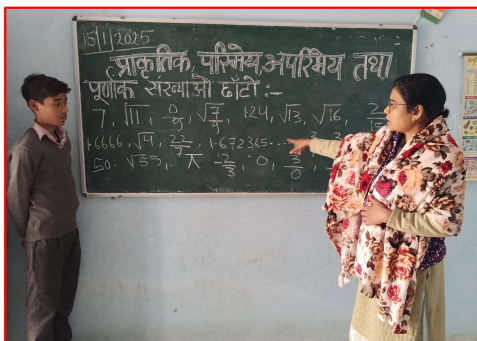 15/1/2025
प्राकृतिक, परिमेय, अपरिमेय तथा
पूर्णांक संख्याओं छाँटो :-
7, √11, 0/9, √7/9, 1.24, √13, √16, 2
1.6666, √4, 22/7, 1.672365...
50, √55, π, -2/3, 0, 3/0